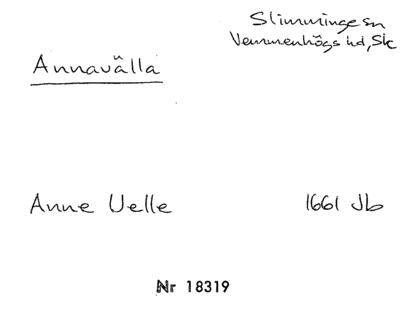 Slimminge sn
Vemmenhögs hd, Sk
Annavålla
Anne Uelle 1661 Jb
Nr 18319